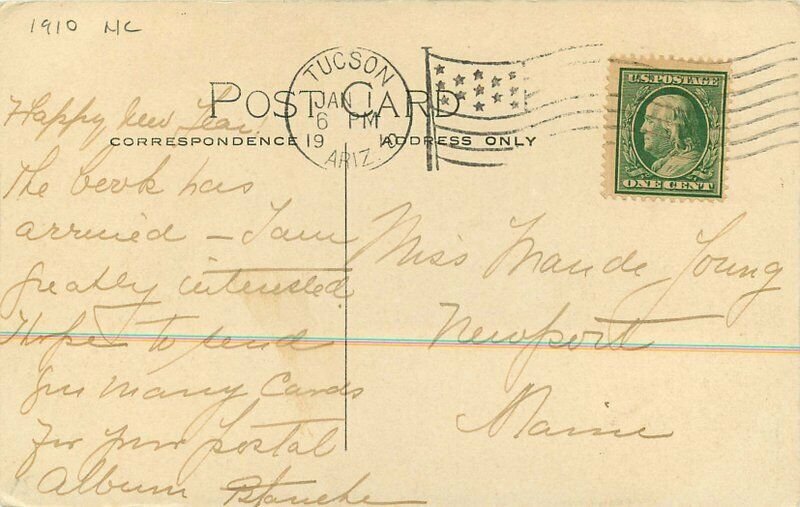 1910 NC
POST CARD
CORRESPONDENCE
ADDRESS ONLY
TUCSON
JAN 1
6 PM
1910
ARIZ.
U.S. POSTAGE
ONE CENT
Happy New Year,
The book has
arrived – I am
greatly interested
Hope to send
you many Cards
for your postal
album Blanche
Miss Maude Young
Newport
Maine